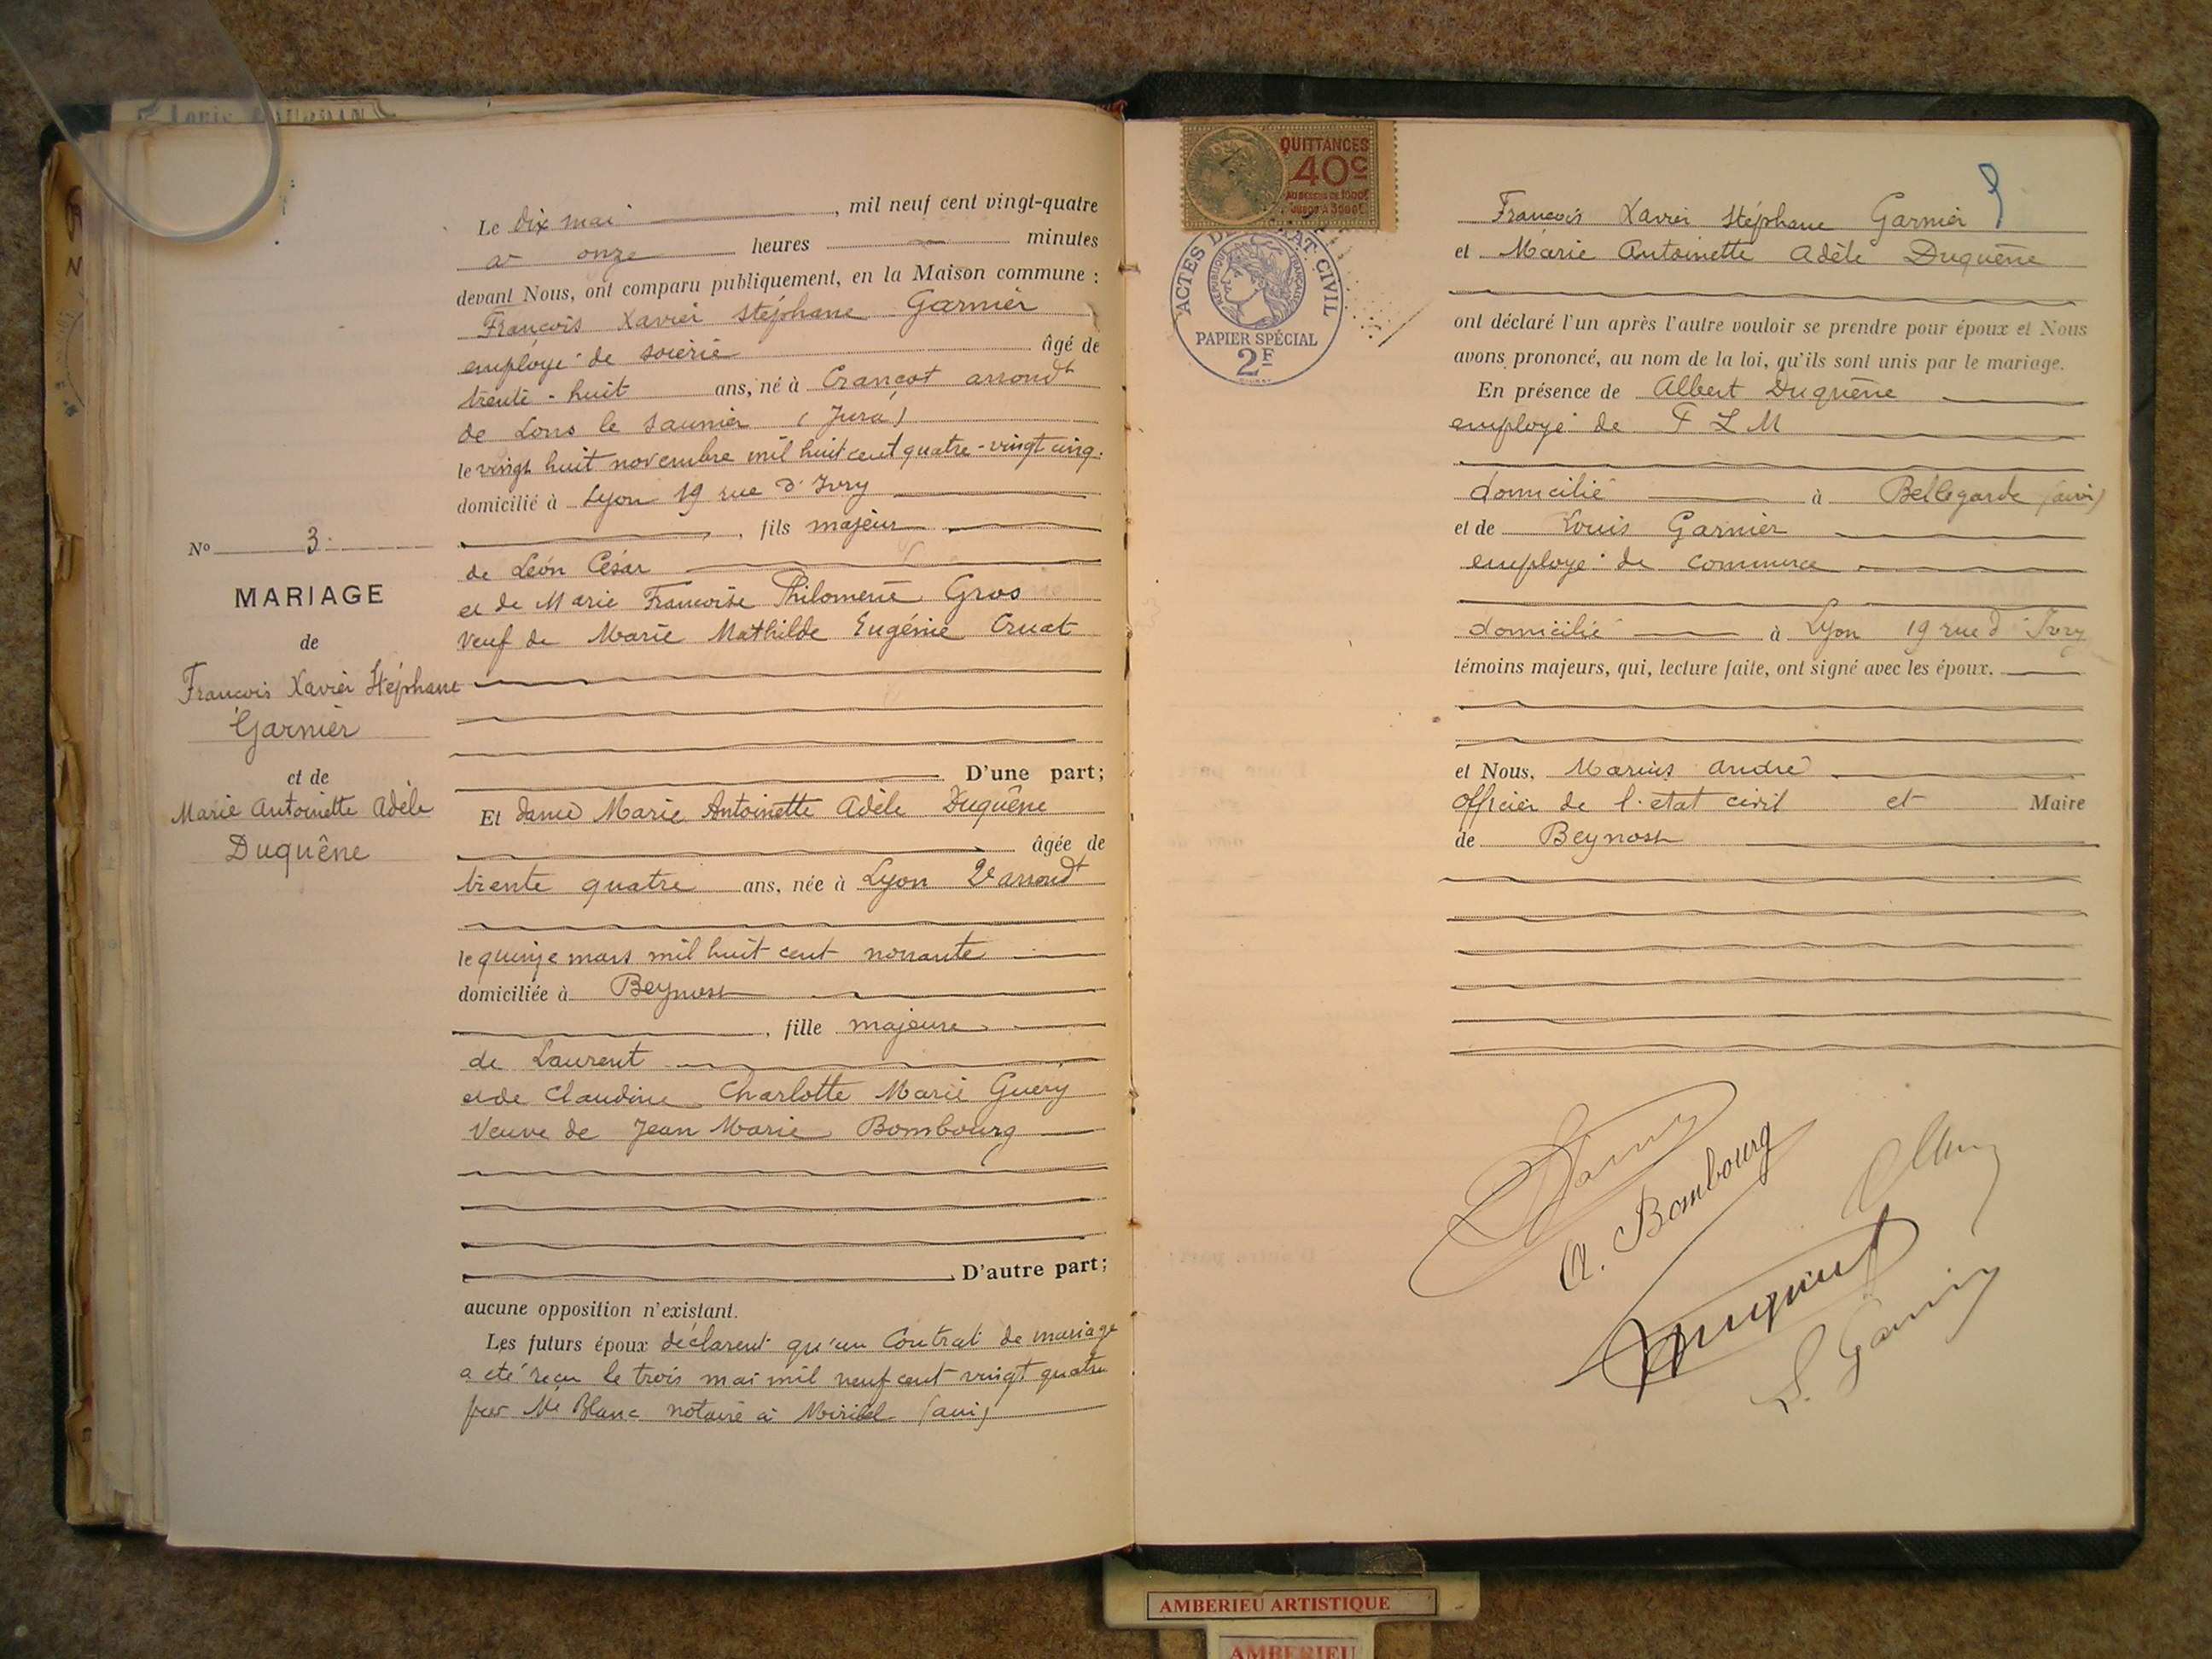 Le dix mai, mil neuf cent vingt-quatre
à onze heures minutes
devant Nous, ont comparu publiquement, en la Maison commune :
François Xavier Stéphane Garnier
employé de soierie âgé de
trente-huit ans, né à Crançot arrondt
de Lons le Saunier (Jura)
le vingt huit novembre mil huit cent quatre-vingt cinq.
domicilié à Lyon 19 rue d'Ivry
, fils majeur
de Léon César
et de Marie Françoise Philomène Gros
Veuf de Marie Mathilde Eugénie Cruat
D'une part;
Et dame Marie Antoinette Adèle Duquêne
âgée de
trente quatre ans, née à Lyon 2e arrondt
le quinze mars mil huit cent nonante
domiciliée à Beynost
, fille majeure
de Laurent
et de Claudine Charlotte Marie Guery
Veuve de Jean Marie Bombourg
D'autre part;
aucune opposition n'existant.
Les futurs époux déclarent qu'un Contrat de mariage
a été reçu le trois mai mil neuf cent vingt quatre
par Me Blanc notaire à Miribel (ain)
No 3
MARIAGE
de
François Xavier Stéphane
Garnier
et de
Marie Antoinette Adèle
Duquêne
QUITTANCES
40c
ACTES DE L'ÉTAT CIVIL
RÉPUBLIQUE FRANÇAISE
PAPIER SPÉCIAL
2F
François Xavier Stéphane Garnier
et Marie Antoinette Adèle Duquêne
ont déclaré l'un après l'autre vouloir se prendre pour époux et Nous
avons prononcé, au nom de la loi, qu'ils sont unis par le mariage.
En présence de Albert Duquêne
employé de P L M
domicilié à Bellegarde (ain)
et de Louis Garnier
employé de commerce
domicilié à Lyon 19 rue d'Ivry
témoins majeurs, qui, lecture faite, ont signé avec les époux.
et Nous, Marius André
officier de l'état civil et Maire
de Beynost
A. Bombourg
L. Garnier
AMBERIEU ARTISTIQUE
AMBERIEU